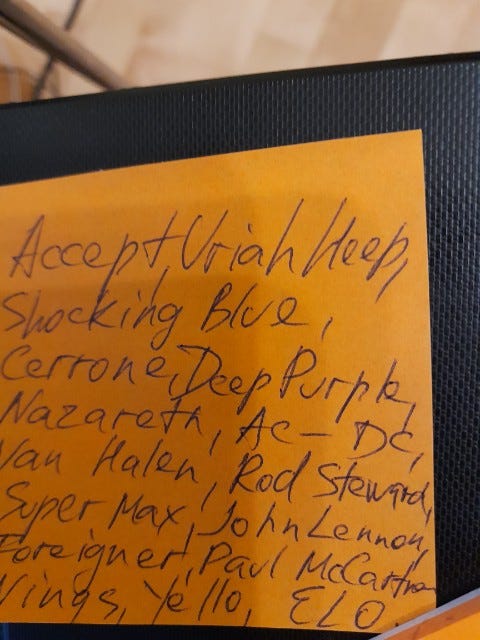 Accept, Uriah Heep,
Shocking Blue,
Cerrone, Deep Purple,
Nazareth, AC-DC,
Van Halen, Rod Steward,
Super Max, John Lennon,
Foreigner, Paul McCartney
Wings, Yello, ELO.